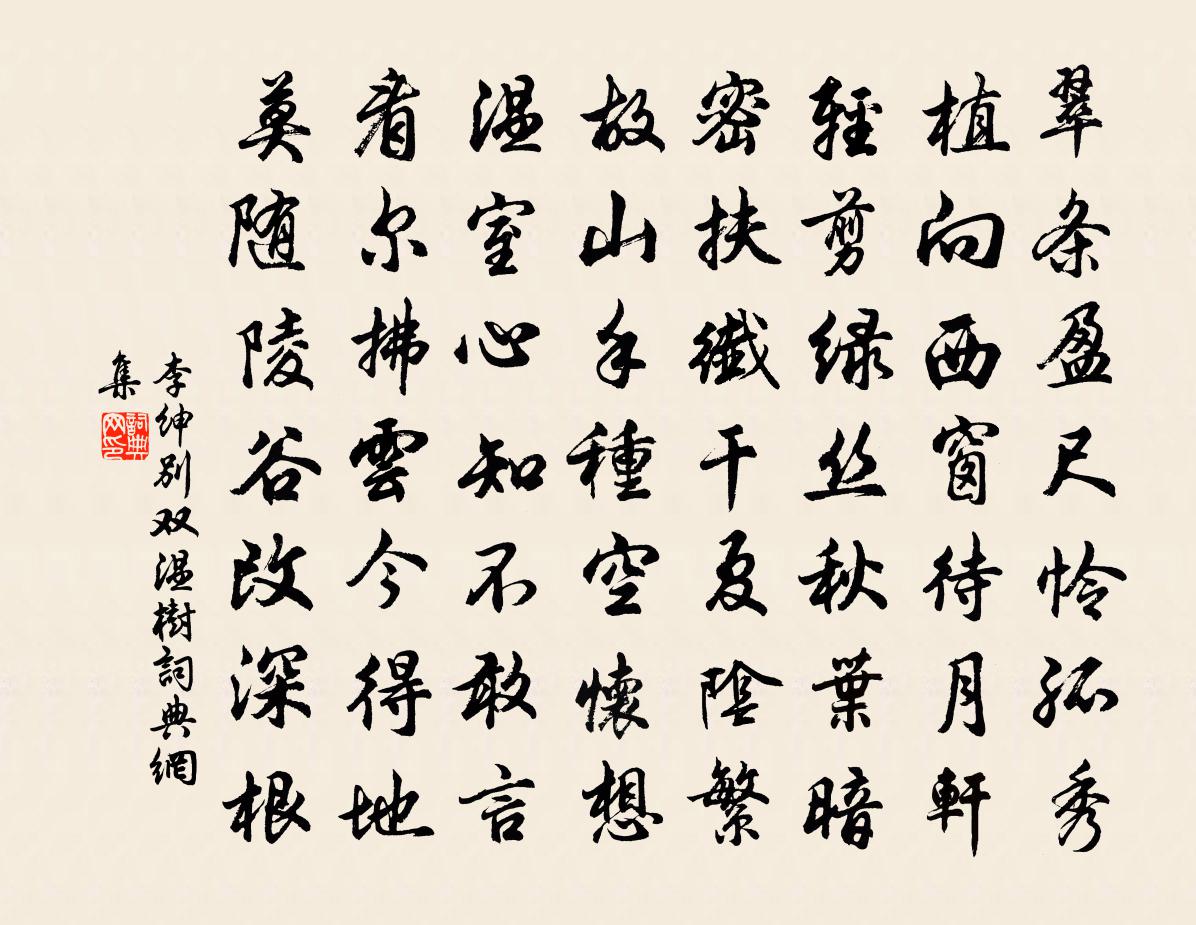 翠条盈尺怜孤秀
植向西窗待月軒
輕剪緑丝秋葉暗
密扶纖干夏陰繁
故山手種空懷想
温室心知不敢言
看尔拂雲今得地
莫随陵谷改深根
李绅別双温樹詞典網
集
詞典网印